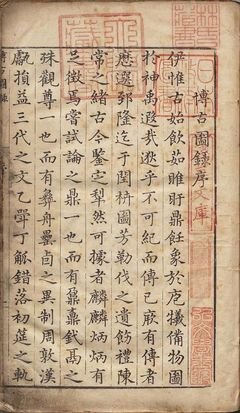 博古圖錄序
文庫
伊惟古始飲茹睢盱鼎飪象於庖犧備物圖
於神禹遐哉邈乎不可紀而傳已厥有傳者
郅隆迄于閎枅圖芳勒伐之遺飭禮陳
常之緒古今鑒定犁然可據者麟麟炳炳有
足徵焉嘗試論之鼎一也而有鼐鼒釴鬲之
殊觀尊一也而有彝舟罍卣之異制周敦漢
甗損益三代之文乙舉丁觚錯落初筵之軌